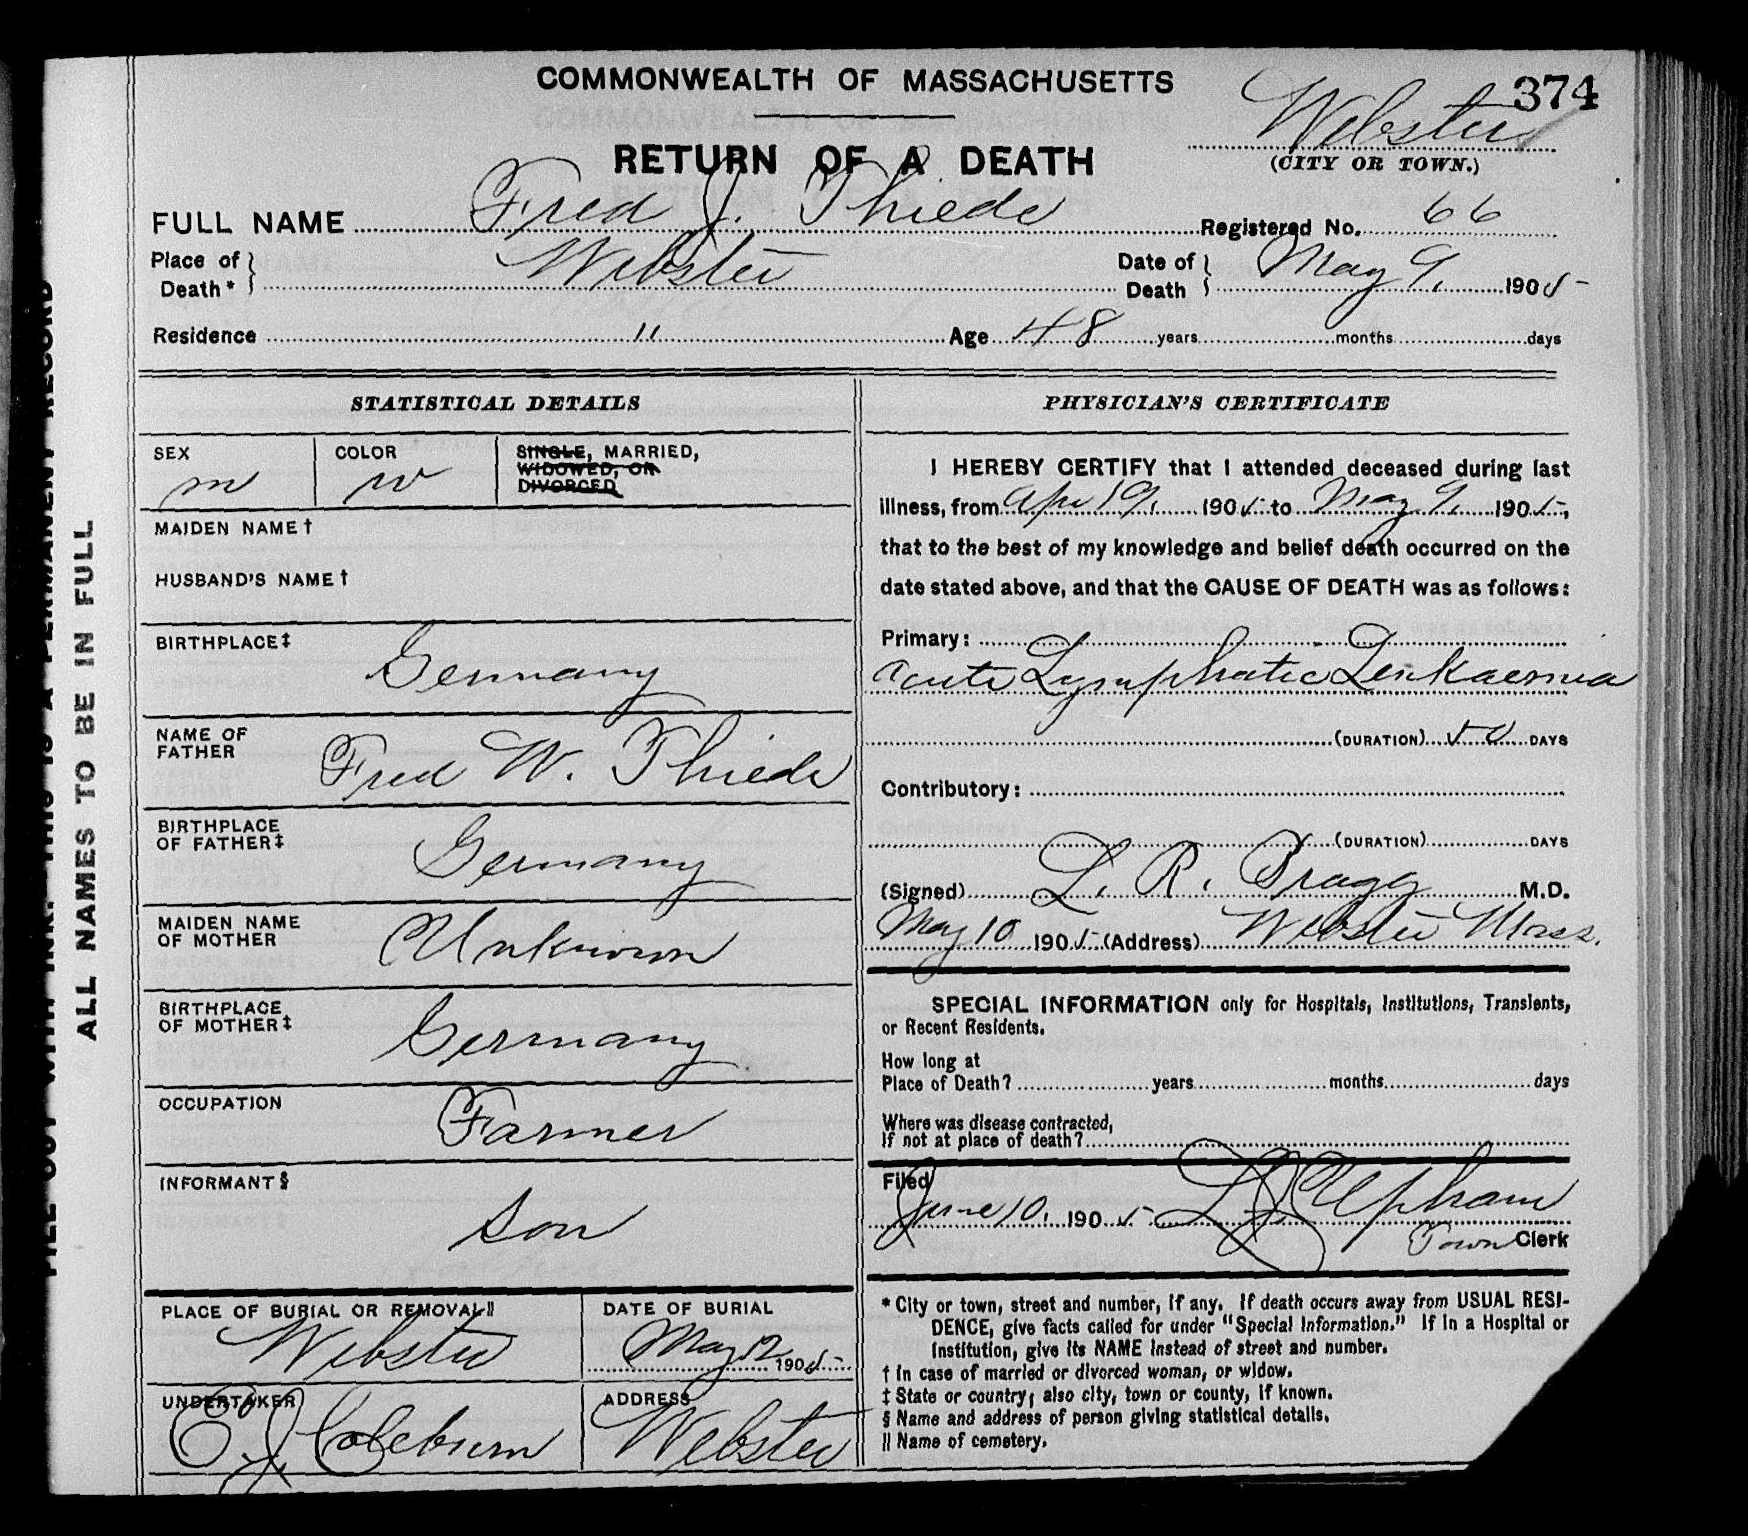 COMMONWEALTH OF MASSACHUSETTS
374
Webster
(CITY OR TOWN.)
RETURN OF A DEATH
FULL NAME Fred J. Thiede Registered No. 66
Place of Death* Webster Date of Death May 9, 1905
Residence " Age 48 years months days
STATISTICAL DETAILS
SEX
m
COLOR
w
SINGLE, MARRIED,
WIDOWED, OR
DIVORCED
MAIDEN NAME†
HUSBAND'S NAME†
BIRTHPLACE‡
Germany
NAME OF
FATHER
Fred W. Thiede
BIRTHPLACE
OF FATHER‡
Germany
MAIDEN NAME
OF MOTHER
Unknown
BIRTHPLACE
OF MOTHER‡
Germany
OCCUPATION
Farmer
INFORMANT§
Son
PLACE OF BURIAL OR REMOVAL||
Webster
DATE OF BURIAL
May 12 1905
UNDERTAKER
ADDRESS
Webster
PHYSICIAN'S CERTIFICATE
I HEREBY CERTIFY that I attended deceased during last
illness, from 1905 to May 9, 1905,
that to the best of my knowledge and belief death occurred on the
date stated above, and that the CAUSE OF DEATH was as follows:
Primary:
Acute Lymphatic Leukaemia
(DURATION) 50 DAYS
Contributory:
(DURATION) DAYS
(Signed) L. R. Bragg M.D.
May 10 1905 (Address) Webster Mass.
SPECIAL INFORMATION only for Hospitals, Institutions, Transients,
or Recent Residents.
How long at
Place of Death? years months days
Where was disease contracted,
If not at place of death?
Filed
June 10, 1905 Upham
Town Clerk
* City or town, street and number, if any. If death occurs away from USUAL RESI-
DENCE, give facts called for under "Special Information." If in a Hospital or
Institution, give its NAME instead of street and number.
† In case of married or divorced woman, or widow.
‡ State or country; also city, town or county, if known.
§ Name and address of person giving statistical details.
|| Name of cemetery.
ALL NAMES TO BE IN FULL